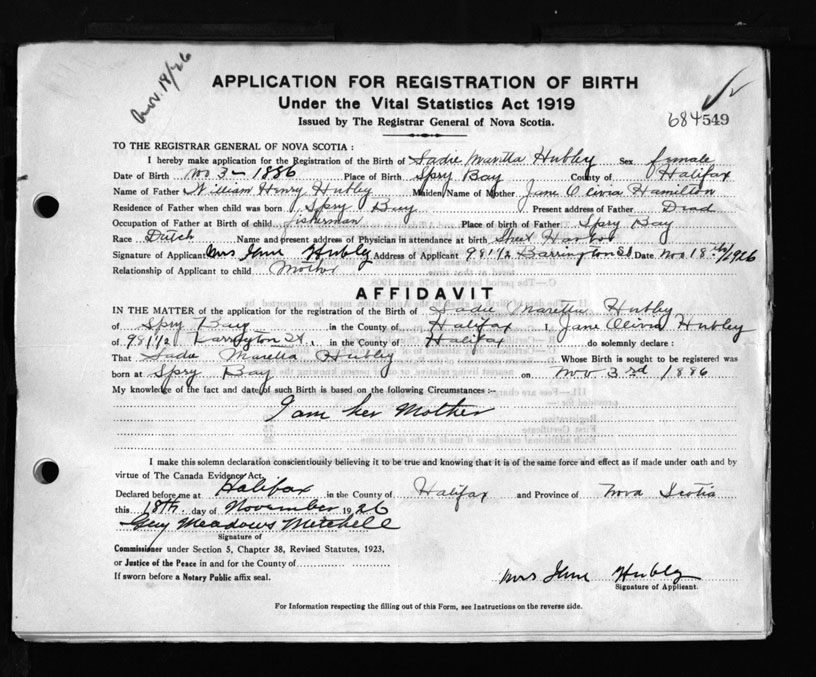 Nov. 18/26
APPLICATION FOR REGISTRATION OF BIRTH
Under the Vital Statistics Act 1919
Issued by The Registrar General of Nova Scotia.
684549
TO THE REGISTRAR GENERAL OF NOVA SCOTIA :
I hereby make application for the Registration of the Birth of Sadie Maretta Hubley Sex female
Date of Birth Nov 3 - 1886 Place of Birth Spry Bay County of Halifax
Name of Father William Henry Hubley Maiden Name of Mother Jane Olivia Hamilton
Residence of Father when child was born Spry Bay Present address of Father Dead
Occupation of Father at Birth of child fisherman Place of birth of Father Spry Bay
Race Dutch Name and present address of Physician in attendance at birth Sheet Harbor
Signature of Applicant Mrs Jane Hubley Address of Applicant 981 1/2 Barrington St. Date Nov 18th/1926
Relationship of Applicant to child Mother
AFFIDAVIT
IN THE MATTER of the application for the registration of the Birth of Sadie Maretta Hubley
of Spry Bay in the County of Halifax I, Jane Olivia Hubley
of 981 1/2 Barrington St., in the County of Halifax do solemnly declare :
That Sadie Maretta Hubley Whose Birth is sought to be registered was
born at Spry Bay on Nov 3rd 1886
My knowledge of the fact and date of such Birth is based on the following Circumstances :-
I am her Mother
I make this solemn declaration conscientiously believing it to be true and knowing that it is of the same force and effect as if made under oath and by
virtue of The Canada Evidence Act.
Declared before me at Halifax in the County of Halifax and Province of Nova Scotia
this 18th. day of November 1926
Guy Meadows Mitchell
Signature of
Commissioner under Section 5, Chapter 38, Revised Statutes, 1923,
or Justice of the Peace in and for the County of
If sworn before a Notary Public affix seal.
Mrs Jane Hubley
Signature of Applicant.
For Information respecting the filling out of this Form, see Instructions on the reverse side.